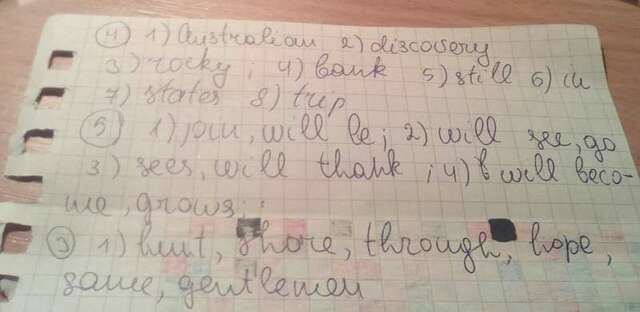 ④ 1) Australian 2) discovery
3) rocky; 4) bank 5) still 6) in
7) states 8) trip
⑤ 1) join, will be; 2) will see, go
3) sees, will thank; 4) will beco-
me, grows;
③ 1) hunt, shore, through, hope,
same, gentlemen